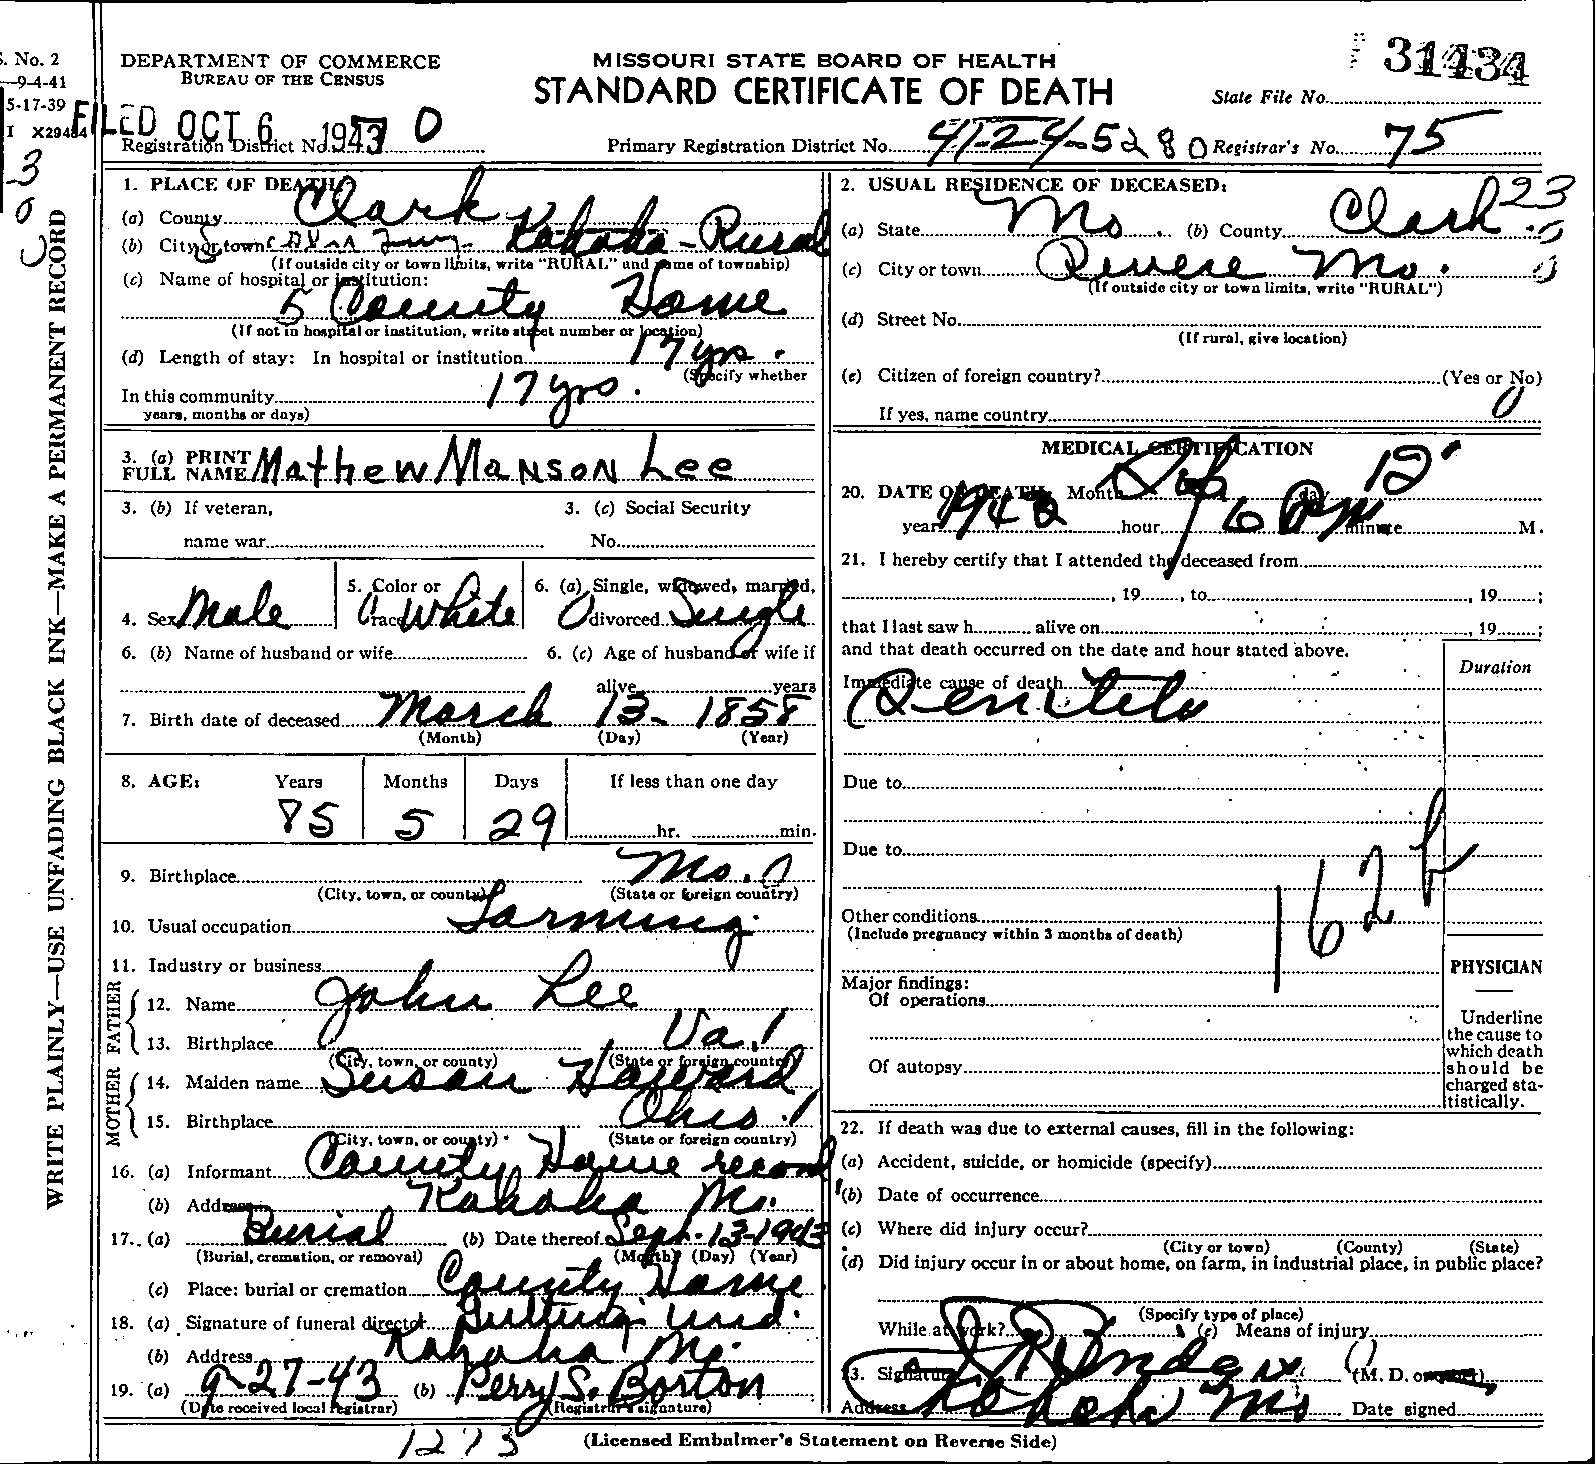 S. No. 2
—9-4-41
5-17-39
I X29484
3
0
WRITE PLAINLY—USE UNFADING BLACK INK—MAKE A PERMANENT RECORD
DEPARTMENT OF COMMERCE
BUREAU OF THE CENSUS
MISSOURI STATE BOARD OF HEALTH
STANDARD CERTIFICATE OF DEATH
31434
State File No.
FILED OCT 6 1943 0
Registration District No.
Primary Registration District No. 41-24-5280
Registrar's No. 75
1. PLACE OF DEATH:
(a) County Clark
(b) City or town Kahoka-Rural
(If outside city or town limits, write "RURAL" and name of township)
(c) Name of hospital or institution:
5 County Home
(If not in hospital or institution, write street number or location)
(d) Length of stay: In hospital or institution 17 yrs.
(Specify whether
In this community 17 yrs.
years, months or days)
2. USUAL RESIDENCE OF DECEASED:
(a) State Mo. (b) County Clark 23
(c) City or town Revere Mo.
(If outside city or town limits, write "RURAL")
(d) Street No.
(If rural, give location)
(e) Citizen of foreign country? (Yes or No)
If yes, name country 0
3. (a) PRINT
FULL NAME Mathew Manson Lee
3. (b) If veteran,
name war
3. (c) Social Security
No.
4. Sex Male
5. Color or
race White
6. (a) Single, widowed, married,
divorced Single
6. (b) Name of husband or wife
6. (c) Age of husband or wife if
alive years
7. Birth date of deceased March 13- 1858
(Month) (Day) (Year)
8. AGE: Years Months Days If less than one day
85 5 29 hr. min.
9. Birthplace Mo. 0
(City, town, or county) (State or foreign country)
10. Usual occupation Farming
11. Industry or business
FATHER
12. Name John Lee
13. Birthplace Va. 1
(City, town, or county) (State or foreign country)
MOTHER
14. Maiden name Susan Haward
15. Birthplace Ohio. 1
(City, town, or county) (State or foreign country)
16. (a) Informant County Home record
(b) Address Kahoka Mo.
17. (a) Burial (b) Date thereof Sept.-13-1943
(Burial, cremation, or removal) (Month) (Day) (Year)
(c) Place: burial or cremation County Home
18. (a) Signature of funeral director Und.
(b) Address Kahoka Mo.
19. (a) 9-27-43 (b) Perry S. Borton
(Date received local registrar) (Registrar's signature)
1273
MEDICAL CERTIFICATION
20. DATE OF DEATH: Month day 12
year hour 6 PM minute M.
21. I hereby certify that I attended the deceased from
, 19 , to , 19 ;
that I last saw h alive on , 19 ;
and that death occurred on the date and hour stated above.
Duration
Immediate cause of death
Senility
Due to
Due to
162b
Other conditions
(Include pregnancy within 3 months of death)
Major findings:
Of operations
Of autopsy
PHYSICIAN
Underline
the cause to
which death
should be
charged sta-
tistically.
22. If death was due to external causes, fill in the following:
(a) Accident, suicide, or homicide (specify)
(b) Date of occurrence
(c) Where did injury occur?
(City or town) (County) (State)
(d) Did injury occur in or about home, on farm, in industrial place, in public place?
(Specify type of place)
While at work? (e) Means of injury
23. Signature (M. D. or other)
Address Kahoka Mo Date signed
(Licensed Embalmer's Statement on Reverse Side)